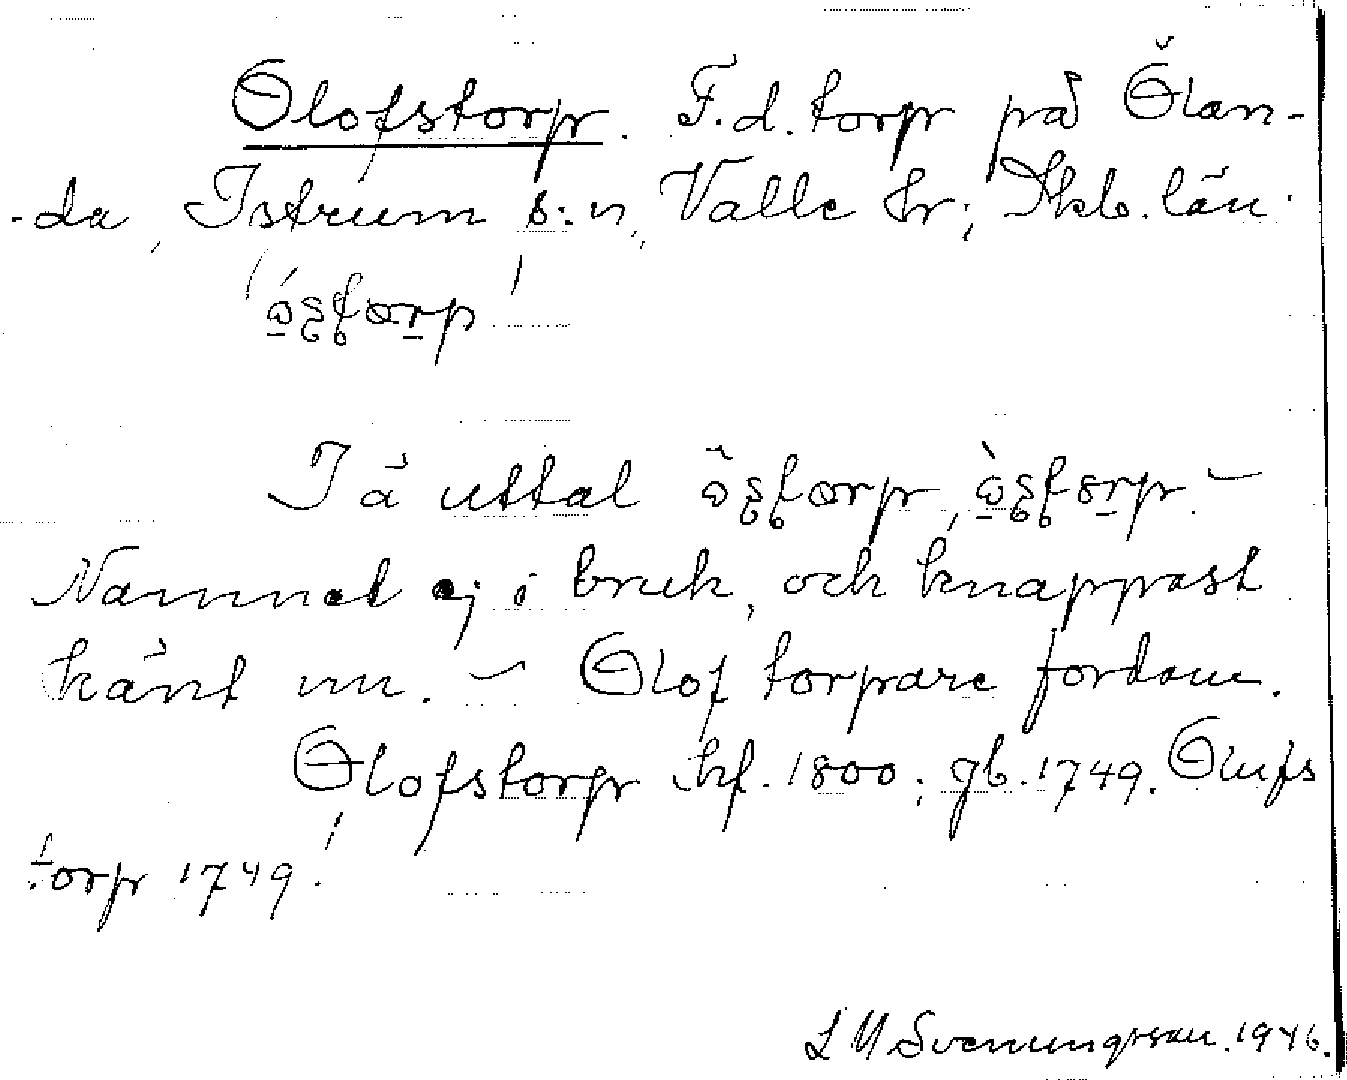 Olofstorp. F.d. torp på Ölan-
-da, Istrum s:n, Valle hr; Skb. län
Tå uttal
Namnet ej i bruk, och knappast
känt nu. – Olof torpare fordom.
Olofstorp hf. 1800; gb. 1749. Olufs
torp 1749.
L M Svenungsson. 1946.